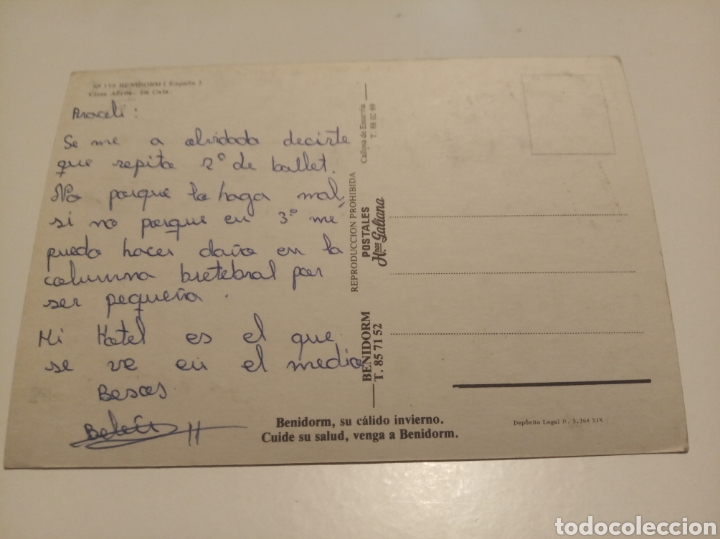 BENIDORM (España)
Vista Aérea. La Cala.
Araceli:
Se me a olvidado decirte
que repito 2º de ballet.
No porque lo haga mal
si no porque en 3º me
puedo hacer daño en la
columna bretebral por
ser pequeña.
Mi Hotel es el que
se ve en el medio
Besos
Belén
REPRODUCCION PROHIBIDA
POSTALES
Hnos Galiana
BENIDORM
T. 85 71 52
Benidorm, su cálido invierno.
Cuide su salud, venga a Benidorm.
Depósito Legal
todocoleccion